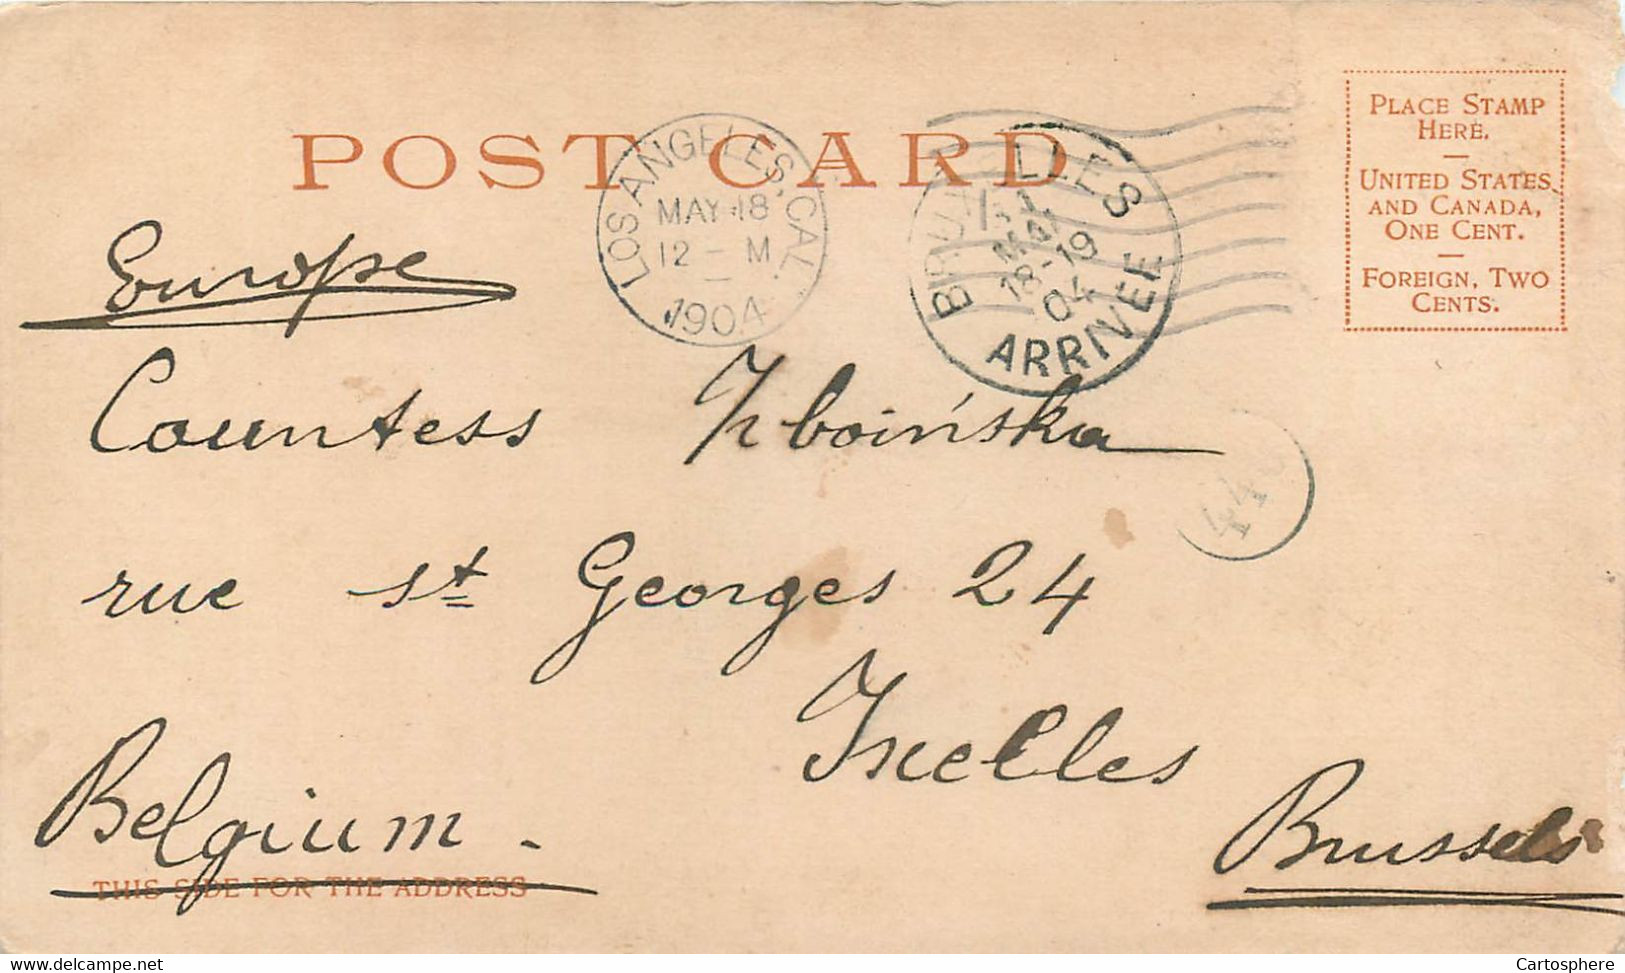 POST CARD
PLACE STAMP
HERE.
—
UNITED STATES
AND CANADA,
ONE CENT.
—
FOREIGN, TWO
CENTS.
LOS ANGELES, CAL.
MAY 18
12 – M
1904
LLES
MAI
18-19
04
ARRIVÉE
Europe
Countess Zboińska
44
rue St Georges 24
Ixelles
Belgium -
Brussels
THIS SIDE FOR THE ADDRESS
delcampe.net
Cartosphere